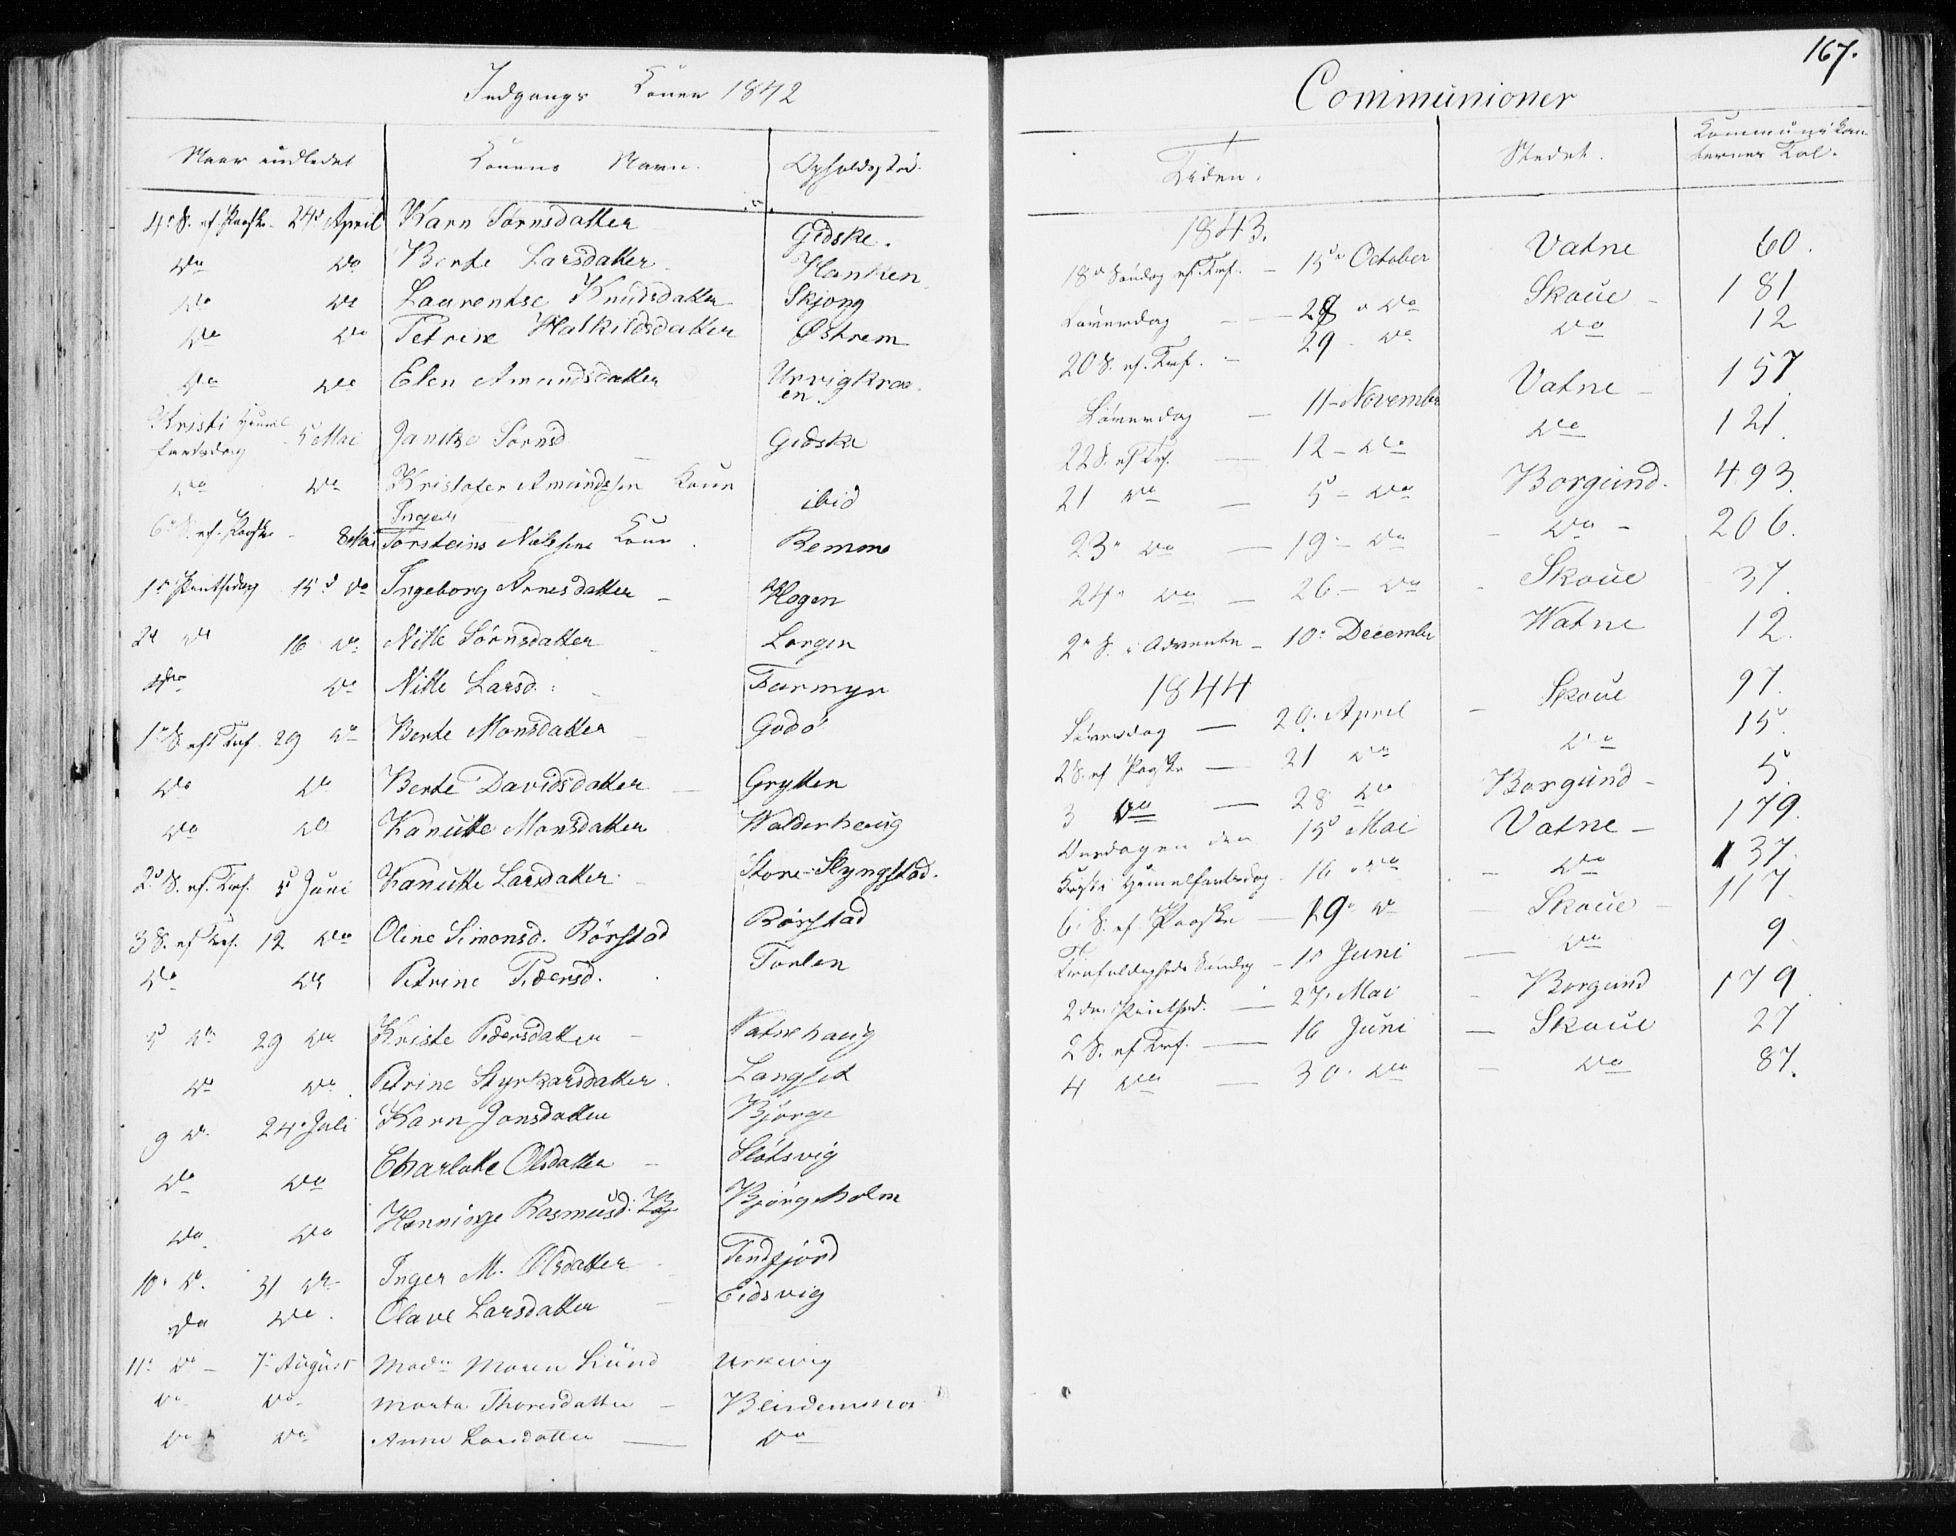 Indgangs Koner 1842
Naar indledet Konens Navn. Opholdsted.
4de S. ef. Paaske - 24de April Karn Sørnsdatter Gidske.
do do Berte Larsdatter Hanken
do do Laurentse Knudsdatter Skjong
do do Petrine Halkildsdatter Østrem
do do Elen Amundsdatter Urvigkraa-
en
Kristi Himmel-
fartsdag - 5 Mai Janitse Sørnsd Gidske
do do Kristofer Amundsen Kone
Inger ibid
6te S. ef. Paaske - 8 Mai Torsteins Nielsens Kone Remme
1ste Pintsedag 15de do Ingeborg Arnesdatter - Hogen
2de do 16 do Nille Sørnsdatter Lorgen
do do Nille Larsd. Farmyr
1ste S. eft. Tref. 29 do Berte Monsdatter Godø
do do Berte Davidsdatter - Grytten
do do Kanutte Monsdatter Walderhoug
2de S. ef. Tref. 5 Juni Kanutte Larsdatter - Store-Slyngstad.
3 S. ef. Tref. 12 do Oline Simonsd. Rørstad Rørstad
do do Petrine Pedersd. Torlen
5 do 29 do Kriste Pedersdatter - Vatnehaug
do do Petrine Styrkarsdatter Langset
9 do 24de Juli Karn Jonsdatter Bjørge
do do Charlotte Olsdatter - Slotsvig
do do Henninge Rasmusd. Bjørgeholm
10de do 31 do Inger M. Olsdatter Tendfjord
do do Olave Larsdatter - Eidsvig
11te do - 7de August Madm Maren Lund Urkevig
do do Marta Thoresdatter - Blindemnes
do do Anne Larsdatter - do
167.
Communioner
Tiden. Stedet. Kommunikan-
ternes Tal.
1843.
18de Søndag ef. Tref. - 15de October Vatne 60.
Løverdag - 28 do Skoue - 181
20 S. ef. Tref. - 29 do do 12
Løverdag - 11 - November Vatne - 157
22 S. ef. Tref. - 12 - do do 121
21 do - 5 - do Borgund. 493
23 do - 19 - do - do - 206.
24 do - 26 - do - Skoue 37.
2de S. i Advente - 10de December Watne 12.
1844
Løverdag - 20de April - Skoue 97.
2 S. ef. Paaske - 21 do do 15.
3 do - 28 do Borgund - 5.
Onsdagen den 15de Mai Vatne - 179.
Kristi Himmelfartsdag - 16 do - do 137.
6te S. ef. Paaske - 19de do - Skoue - 117
Trefoldigheds Søndag - 1ste Juni - do 9
2den Pintsed. - 27. Mai - Borgund 179
2 S. ef. Tref. - 16 Juni - Skoue 27
4 do - 30de do - do 87.